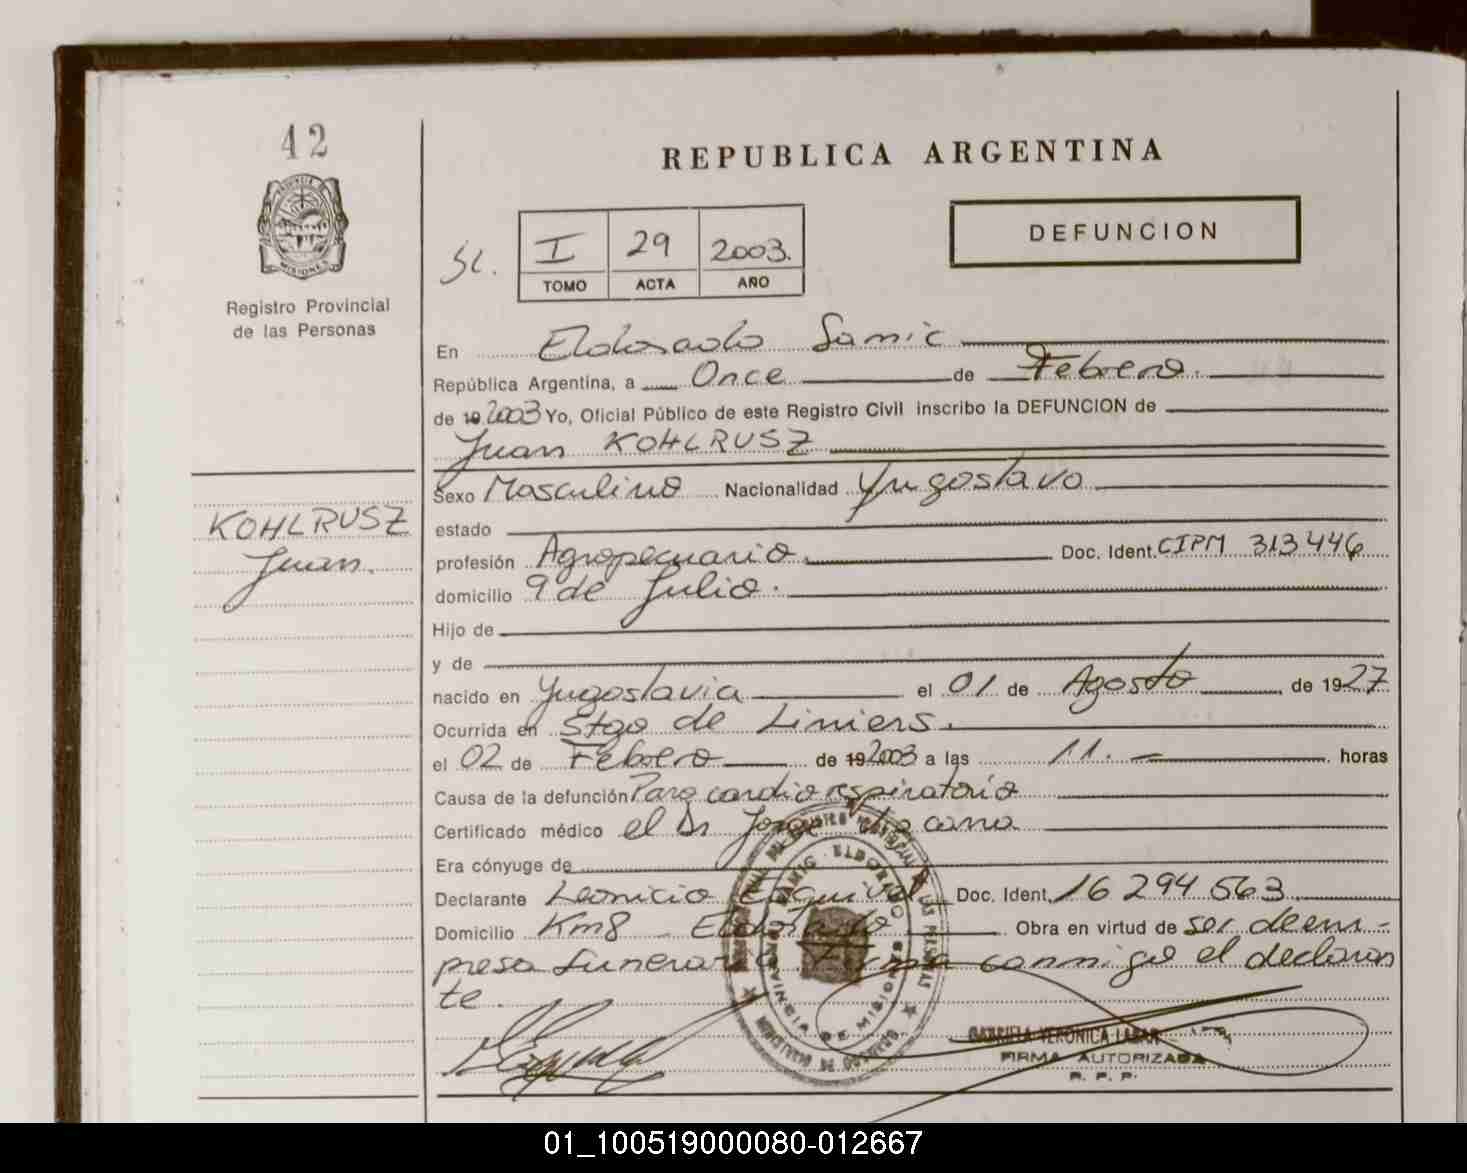 42
REPUBLICA ARGENTINA
PROVINCIA DE
MISIONES
Registro Provincial
de las Personas
I 29 2003.
TOMO ACTA AÑO
DEFUNCION
En Eldorado Samic
República Argentina, a Once de Febrero.
de 19 2003 Yo, Oficial Público de este Registro Civil inscribo la DEFUNCION de
Juan KOHLRUSZ
Sexo Masculino Nacionalidad Yugoslavo
KOHLRUSZ
Juan.
estado
profesión Agropecuario. Doc. Ident. CIPM 313446
domicilio 9 de Julio.
Hijo de
y de
nacido en Yugoslavia el 01 de Agosto de 1927
Ocurrida en Stgo de Liniers.
el 02 de Febrero de 19 2003 a las 11.- horas
Causa de la defunción Paro cardio respiratorio
Certificado médico el Dr Jorge
Era cónyuge de
Declarante Leonicio Esquivel Doc. Ident. 16 294 563
Domicilio Km8 Eldorado Obra en virtud de ser de em-
presa funeraria Firma conmigo el declaran
te.
GABRIELA VERONICA
FIRMA AUTORIZADA
R. P. P.
01_100519000080-012667